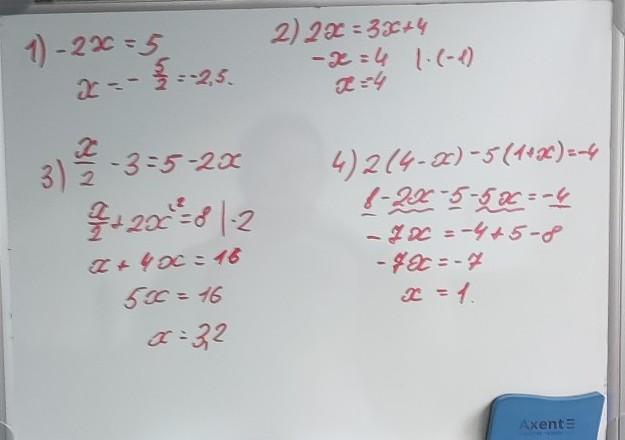 1) -2x = 5
x = - 5/2 = -2,5.
2) 2x = 3x+4
-x = 4 | · (-1)
x = -4
3) x/2 - 3 = 5 - 2x
x/2 + 2x = 8 | · 2
x + 4x = 16
5x = 16
x = 3,2
4) 2(4-x) - 5(1+x) = -4
8 - 2x - 5 - 5x = -4
-7x = -4+5-8
-7x = -7
x = 1.
Axent